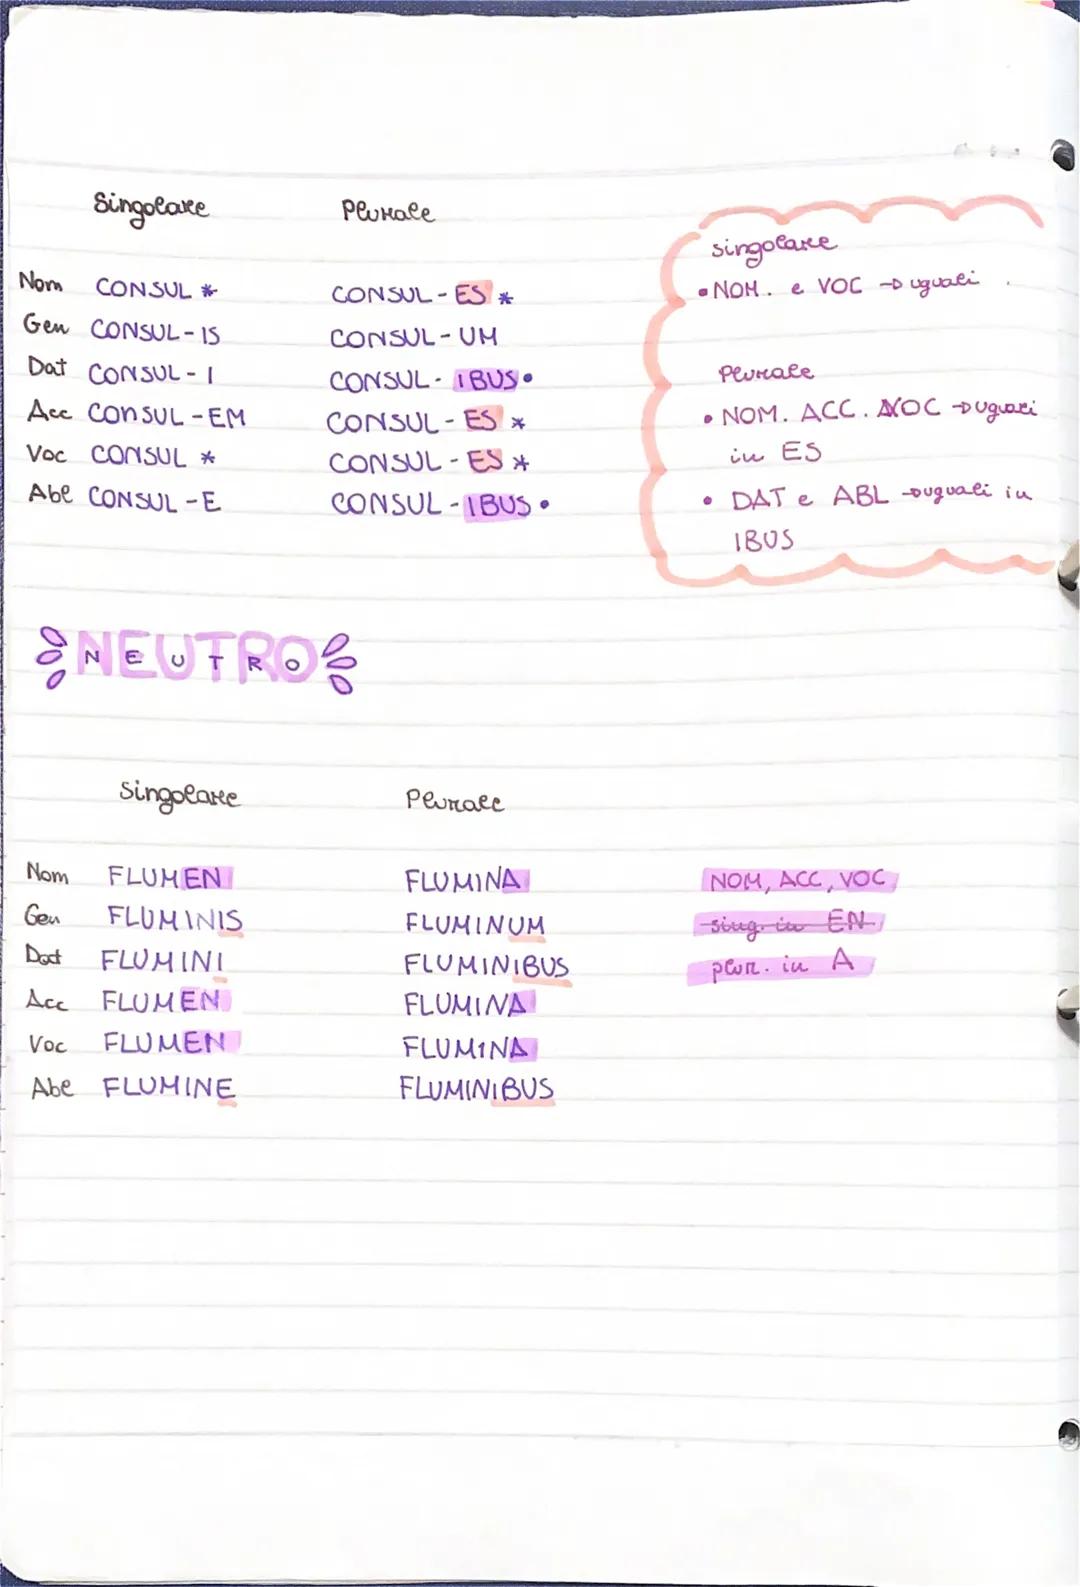 Singolare Plurale
Nom CONSUL * CONSUL-ES *
Gen CONSUL-IS CONSUL-UM
Dat CONSUL-I CONSUL-IBUS •
Acc CONSUL-EM CONSUL-ES *
Voc CONSUL * CONSUL-ES *
Abl CONSUL-E CONSUL-IBUS •
singolare
• NOM. e VOC → uguali
Plurale
• NOM. ACC. VOC → uguali
in ES
• DAT e ABL → uguali in
IBUS
NEUTRO
Singolare Plurale
Nom FLUMEN FLUMINA
Gen FLUMINIS FLUMINUM
Dat FLUMINI FLUMINIBUS
Acc FLUMEN FLUMINA
Voc FLUMEN FLUMINA
Abl FLUMINE FLUMINIBUS
NOM, ACC, VOC
sing. in EN
plur. in A